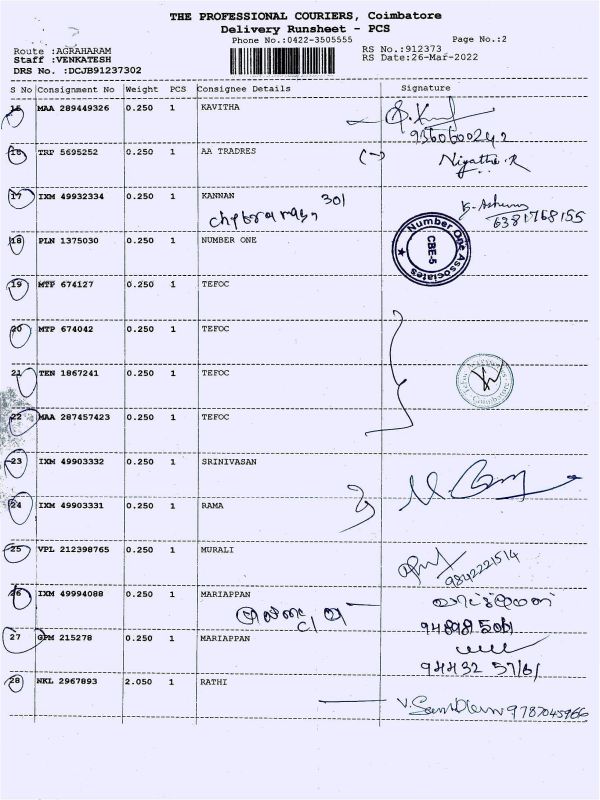 THE PROFESSIONAL COURIERS, Coimbatore
Delivery Runsheet - PCS
Phone No.:0422-3505555
Page No.:2
Route :AGRAHARAM
RS No.:912373
Staff :VENKATESH
RS Date:26-Mar-2022
DRS No. :DCJB91237302
S No Consignment No Weight PCS Consignee Details Signature
15 MAA 289449326 0.250 1 KAVITHA
16 TRP 5695252 0.250 1 AA TRADRES
17 IXM 49932334 0.250 1 KANNAN 301
6381768155
18 PLN 1375030 0.250 1 NUMBER ONE
Number One Associates
CBE-5
19 MTP 674127 0.250 1 TEFOC
20 MTP 674042 0.250 1 TEFOC
21 TEN 1867241 0.250 1 TEFOC
Coimbatore
22 MAA 287457423 0.250 1 TEFOC
23 IXM 49903332 0.250 1 SRINIVASAN
24 IXM 49903331 0.250 1 RAMA
25 VPL 212398765 0.250 1 MURALI
9842221514
26 IXM 49994088 0.250 1 MARIAPPAN
27 GPM 215278 0.250 1 MARIAPPAN
28 NKL 2967893 2.050 1 RATHI
9787045966